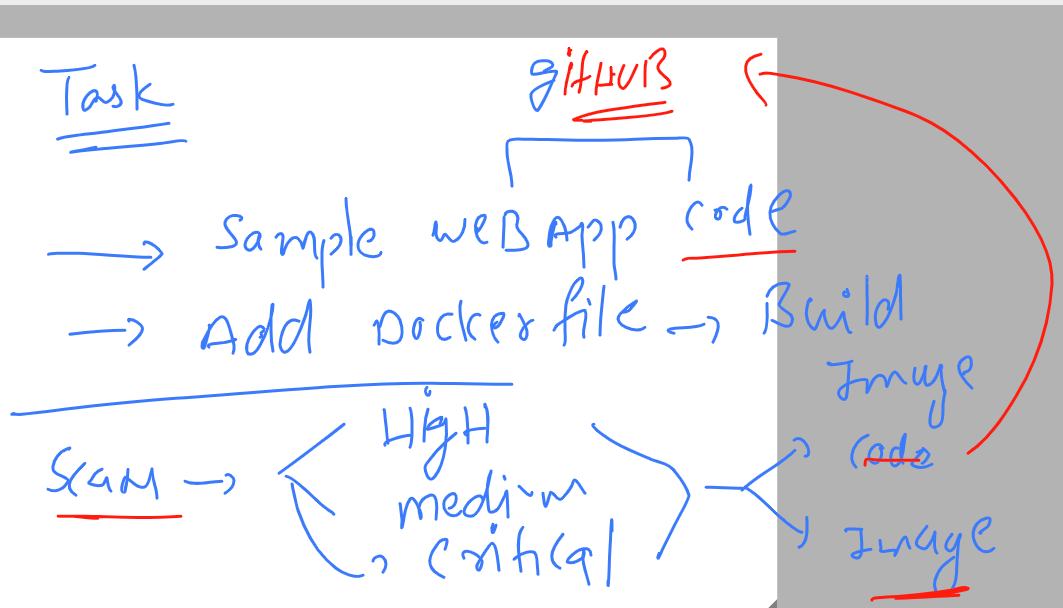 Task
gitHUB
→ Sample weB App code
→ Add Dockerfile → Build
Image
Scan → HigH
medium
critical
Code
Image